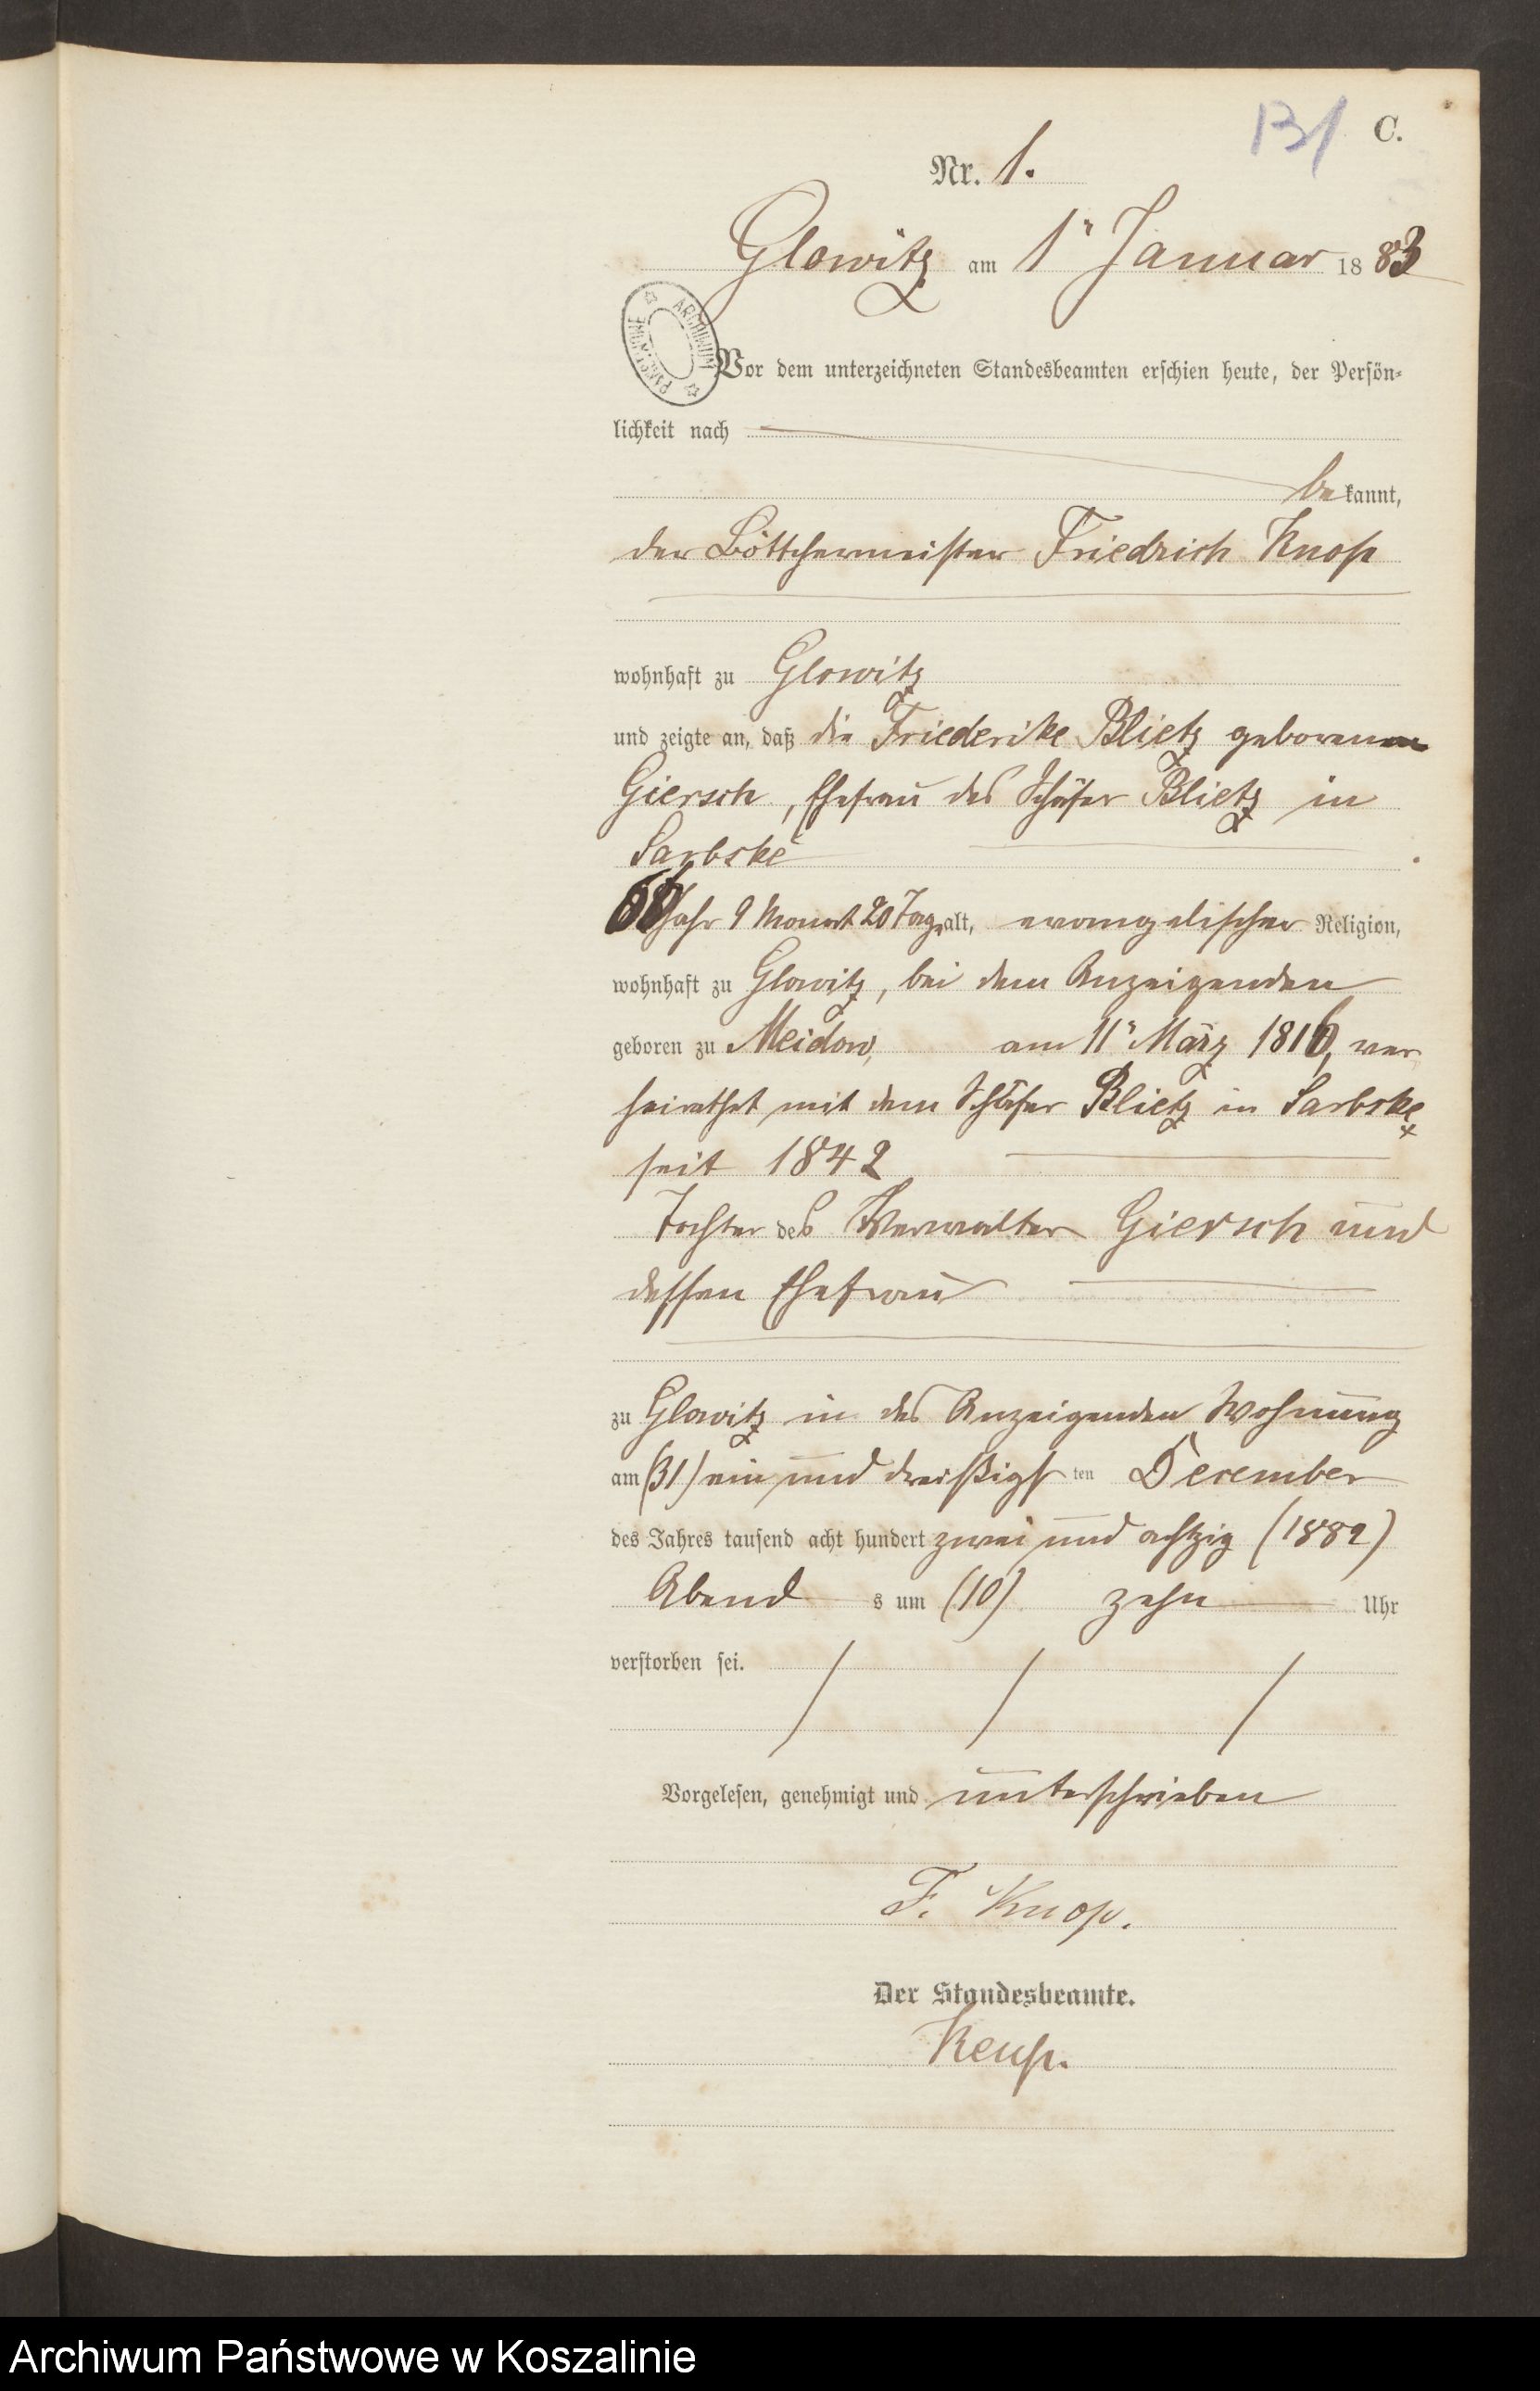 131
C.
Nr. 1.
Glowitz am 1" Januar 1883
ARCHIWUM PAŃSTWOWE
Vor dem unterzeichneten Standesbeamten erschien heute, der Persön-
lichkeit nach
bekannt,
der Böttchermeister Friedrich Knop
wohnhaft zu Glowitz
und zeigte an, daß die Friederike Blietz geborenen
Giersch, Ehefrau des Schäfer Blietz in
Sarbske
Jahr 9 Monat 20 Tage alt, evangelischer Religion,
wohnhaft zu Glowitz, bei dem Anzeigenden
geboren zu Meidow, am 11" März 1816, ver
heirathet mit dem Schäfer Blietz in Sarbske
seit 1842
Tochter des Verwalter Giersch und
dessen Ehefrau
zu Glowitz in des Anzeigenden Wohnung
am (31) ein und dreißigsten December
des Jahres tausend acht hundert zwei und achtzig (1882)
Abends um (10) zehn Uhr
verstorben sei.
Vorgelesen, genehmigt und unterschrieben
F. Knop.
Der Standesbeamte.
Archiwum Państwowe w Koszalinie